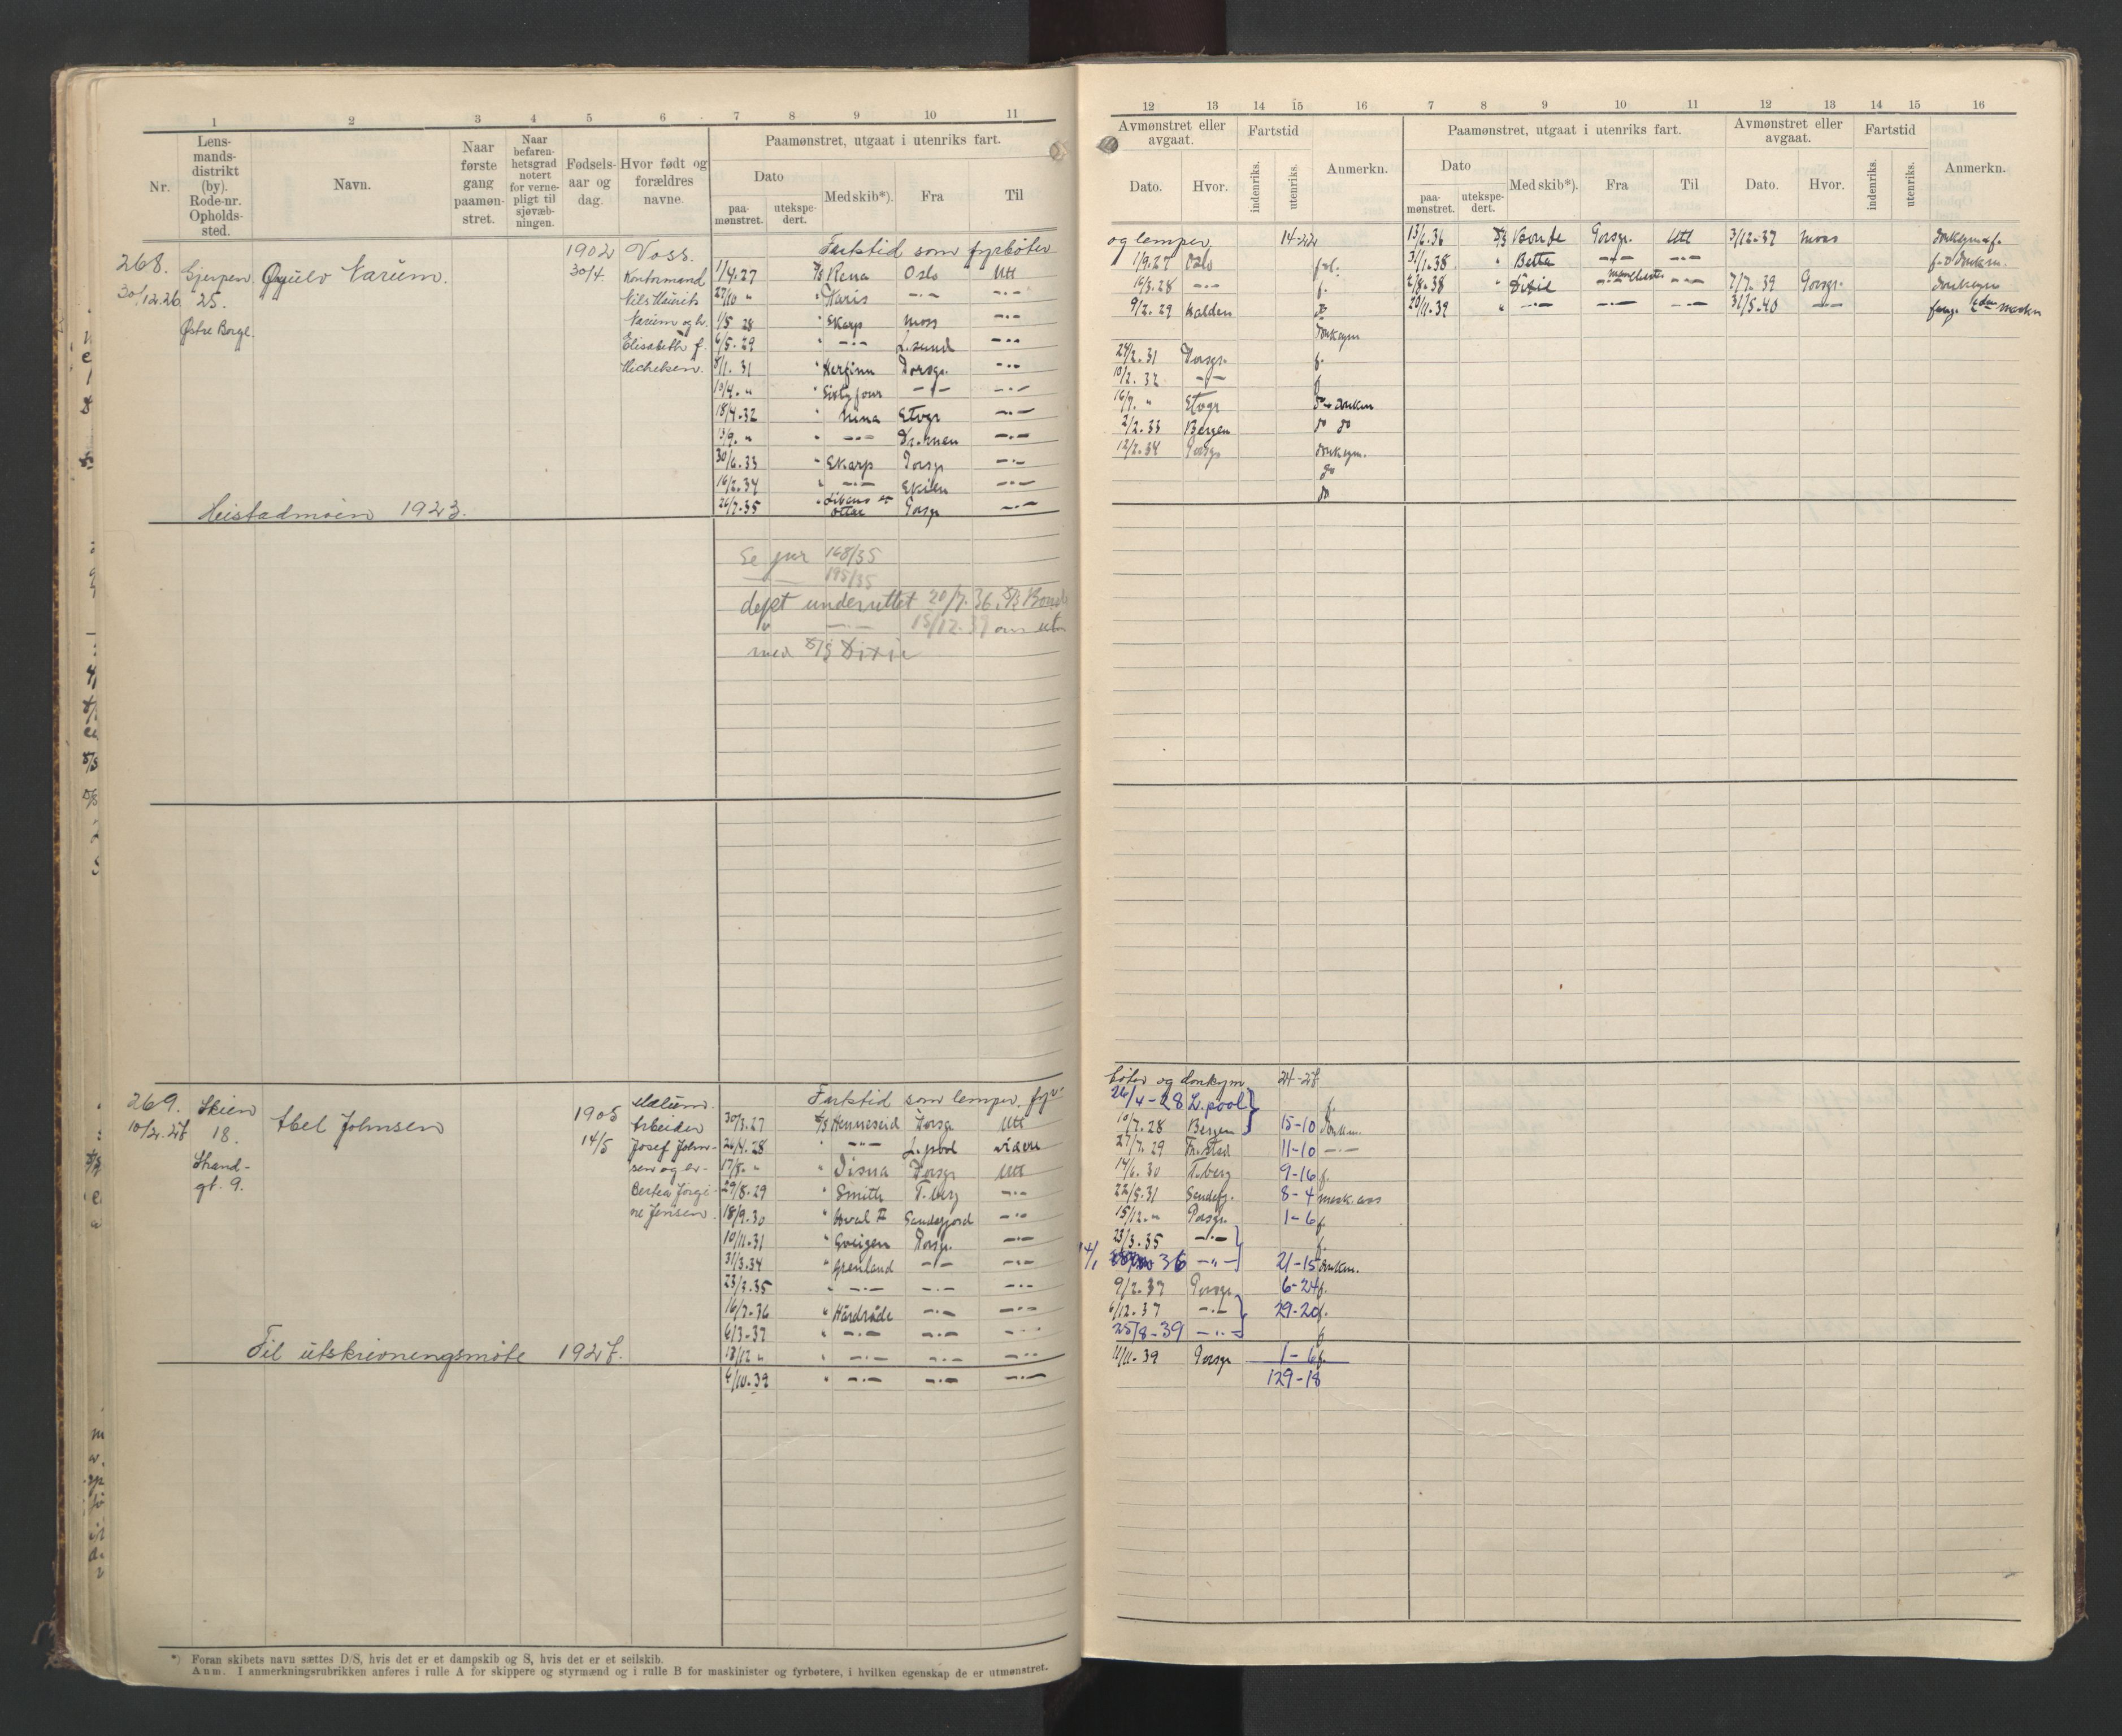 1 2 3 4 5 6 7 8 9 10 11
Nr.
Lens-
mands-
distrikt
(by).
Rode-nr.
Opholds-
sted.
Navn.
Naar
første
gang
paamøn-
stret.
Naar
befaren-
hetsgrad
notert
for verne-
pligt til
sjøvæb-
ningen.
Fødsels-
aar og
dag.
Hvor født og
forældres
navne.
Paamønstret, utgaat i utenriks fart.
Dato
paa-
mønstret.
utekspe-
dert.
Med skib*).
Fra
Til
268.
30/12.26
Gjerpen
25.
Østre Borge.
Øyulv Narum.
1902
30/4.
Voss.
Kontormand
Nils Maurits
Narum og h.
Elisabeth f.
Michelsen.
Fartstid som fyrbøter
1/4.27 D/S Rena Oslo Utl
27/10 " " Karis —.— —.—
1/5 28 " Skarp Moss —.—
6/5.29 " —.— L.sund —.—
8/1.31 " Herginn Porsgr. —.—
10/4. " " Sixtyfour —.— —.—
18/4.32 " Nina Skogr —.—
13/9. " " —.— Dr.men —.—
30/6.33 " Skarp Porsgr —.—
16/2.34 " —.— Skien —.—
26/7.35 " Ottar Porsgr —.—
Heistadmoen 1923.
Se jnr 168/35
— 195/35
dept underrettet 20/7.36. D/S Bonde
" —.— 15/12.39 om utm
med D/S Dixie
269.
10/2.28
Skien
18.
Strand-
gt. 9.
Abel Johnsen
1905
14/5
Mælum.
Arbeider
Josef John-
sen og h-
Berthea Jørgi-
ne Jensen
Fartstid som lemper, fyr-
30/3.27 D/S Henneseid Porsgr Utl
26/4.28 " —"— L.pool videre
17/8. " " Disna Porsgr Utl
29/8.29 " Smith T.berg —.—
18/9.30 " Hval II Sandefjord —.—
10/11.31 " Sveigen Porsgr. —.—
31/3.34 " Grenland —.— —.—
23/3.35 " —.— —.— —.—
16/7.36 " Hårdråde —.— —.—
6/3.37 " —.— —.— —.—
13/12 " " —.— —.— —.—
6/10.39 " —.— —.— —.—
Til utskrivningsmøte 1928.
*) Foran skibets navn sættes D/S, hvis det er et dampskib og S, hvis det er et seilskib.
Anm. I anmerkningsrubrikken anføres i rulle A for skippere og styrmænd og i rulle B for maskinister og fyrbøtere, i hvilken egenskap de er utmønstret.
12 13 14 15 16 7 8 9 10 11 12 13 14 15 16
Avmønstret eller
avgaat.
Dato.
Hvor.
Fartstid
indenriks.
utenriks.
Anmerkn.
Paamønstret, utgaat i utenriks fart.
Dato
paa-
mønstret.
utekspe-
dert.
Med skib*).
Fra
Til
Avmønstret eller
avgaat.
Dato.
Hvor.
Fartstid
indenriks.
utenriks.
Anmerkn.
og lemper 14-22
1/9.27 Oslo
16/3.28 —.— f.
9/2.29 Halden do
donkeym
24/2.31 Porsgr. f.
10/2.32 —.— f.
16/7. " Skogr do donkm
2/2.33 Bergen do do
12/2.34 Porsgr donkeym.
do
do
13/6.36 D/S Bonde Porsgr. Utl 3/12.37 Moss donkeym & f.
31/1.38 " Bette —.— —.— f. & donkm.
2/8.38 " Dixie —.— —.— 7/7.39 Porsgr. donkeym
20/11.39 " —.— —.— —.— 31/5.40 —.—
bøter og donkym 24-28
26/4-28 L.pool f.
10/7.28 Bergen 15-10 donkm.
27/7.29 Fr.stad 11-10 —.—
14/6.30 T.berg 9-16 f.
22/5.31 Sandefj. 8-4 mask. ass
15/12. " Porsgr. 1-6 f.
23/3.35 —.— f.
14/1 36 —"— 21-15 donkm.
9/2.37 Porsgr 6-24 f.
6/12.37 —.— 29-20 f.
25/8-39 —"— f
11/11.39 Porsgr 1-6 f.
129-18